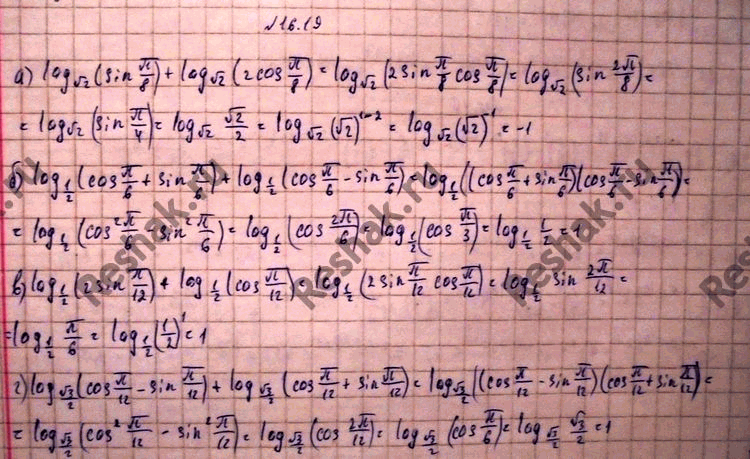 №16.19
а) log_√2 (sin π/8) + log_√2 (2cos π/8) = log_√2 (2sin π/8 cos π/8) = log_√2 (sin 2π/8) =
= log_√2 (sin π/4) = log_√2 √2/2 = log_√2 (√2)^1-2 = log_√2 (√2)^-1 = -1
б) log_1/2 (cos π/6 + sin π/6) + log_1/2 (cos π/6 - sin π/6) = log_1/2 ((cos π/6 + sin π/6)(cos π/6 - sin π/6) =
= log_1/2 (cos² π/6 - sin² π/6) = log_1/2 (cos 2π/6) = log_1/2 (cos π/3) = log_1/2 1/2 = 1
в) log_1/2 (2sin π/12) + log_1/2 (cos π/12) = log_1/2 (2sin π/12 cos π/12) = log_1/2 sin 2π/12 =
= log_1/2 π/6 = log_1/2 (1/2)^1 = 1
г) log_√3/2 (cos π/12 - sin π/12) + log_√3/2 (cos π/12 + sin π/12) = log_√3/2 ((cos π/12 - sin π/12)(cos π/12 + sin π/12) =
= log_√3/2 (cos² π/12 - sin² π/12) = log_√3/2 (cos 2π/12) = log_√3/2 (cos π/6) = log_√3/2 √3/2 = 1
Reshak.ru
Reshak.ru
Reshak.ru